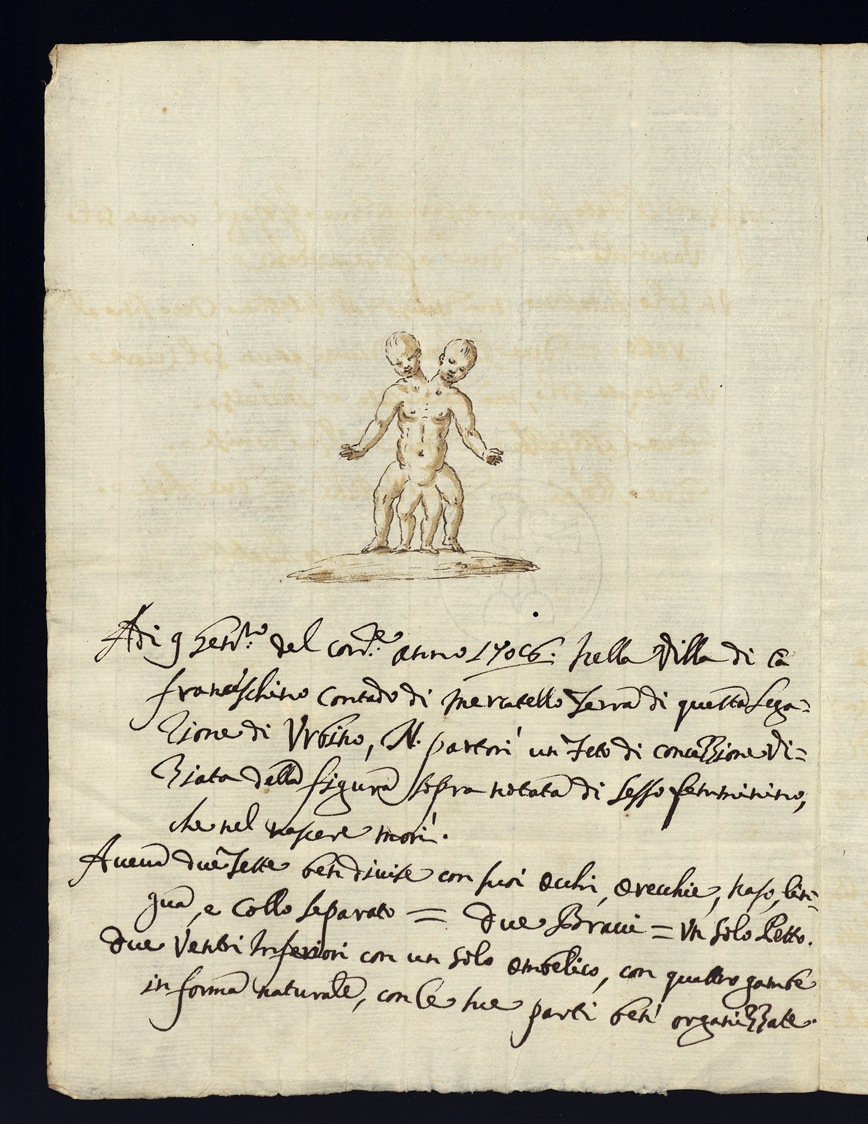 Adi 9 Genn.ro del corr.e anno 1706: nella Villa di Ca
franceschino Contado di Mercatello Terra di questa Lega=
zione di Urbino, N. partori' un Feto di concezzione Vi=
ziata della figura sopra notata di sesso femminino,
che nel nascere mori'.
Aveva due Teste ben divise con suoi occhi, orecchie, naso, lin=
gua, e Collo separato = due Bracci = Un solo Petto.
due Ventri Inferiori con un solo ombelico, con quattro gambe
in forma naturale, con le sue parti ben' organizzate.